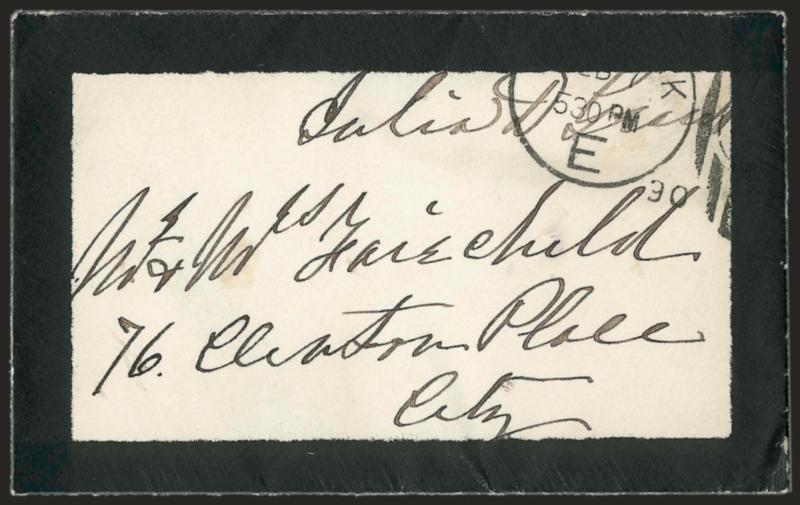 Julia D Grant
K
530 PM
E
90
Mr & Mrs Fairchild
76. Clinton Place
City